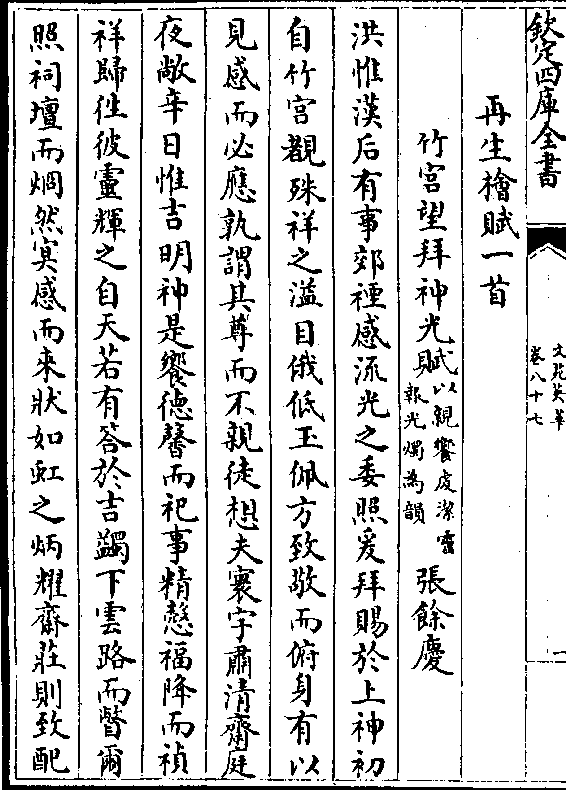 欽定四庫全書
文苑英華
卷八十七
一
再生檜賦一首
竹宮望拜神光賦以親饗虔潔靈
報光燭為韻
張餘慶
洪惟漢后有事郊禋感流光之委照爰拜賜於上神初
自竹宮覩殊祥之溢目俄低玉佩方致敬而俯身有以
見感而必應孰謂其尊而不親徒想夫寰宇肅清齋庭
夜敞辛日惟吉明神是饗德馨而祀事精慤福降而禎
祥歸往彼靈輝之自天若有答於吉蠲下雲路而瞥爾
照祠壇而烱然冥感而來狀如虹之炳耀齋莊則致配